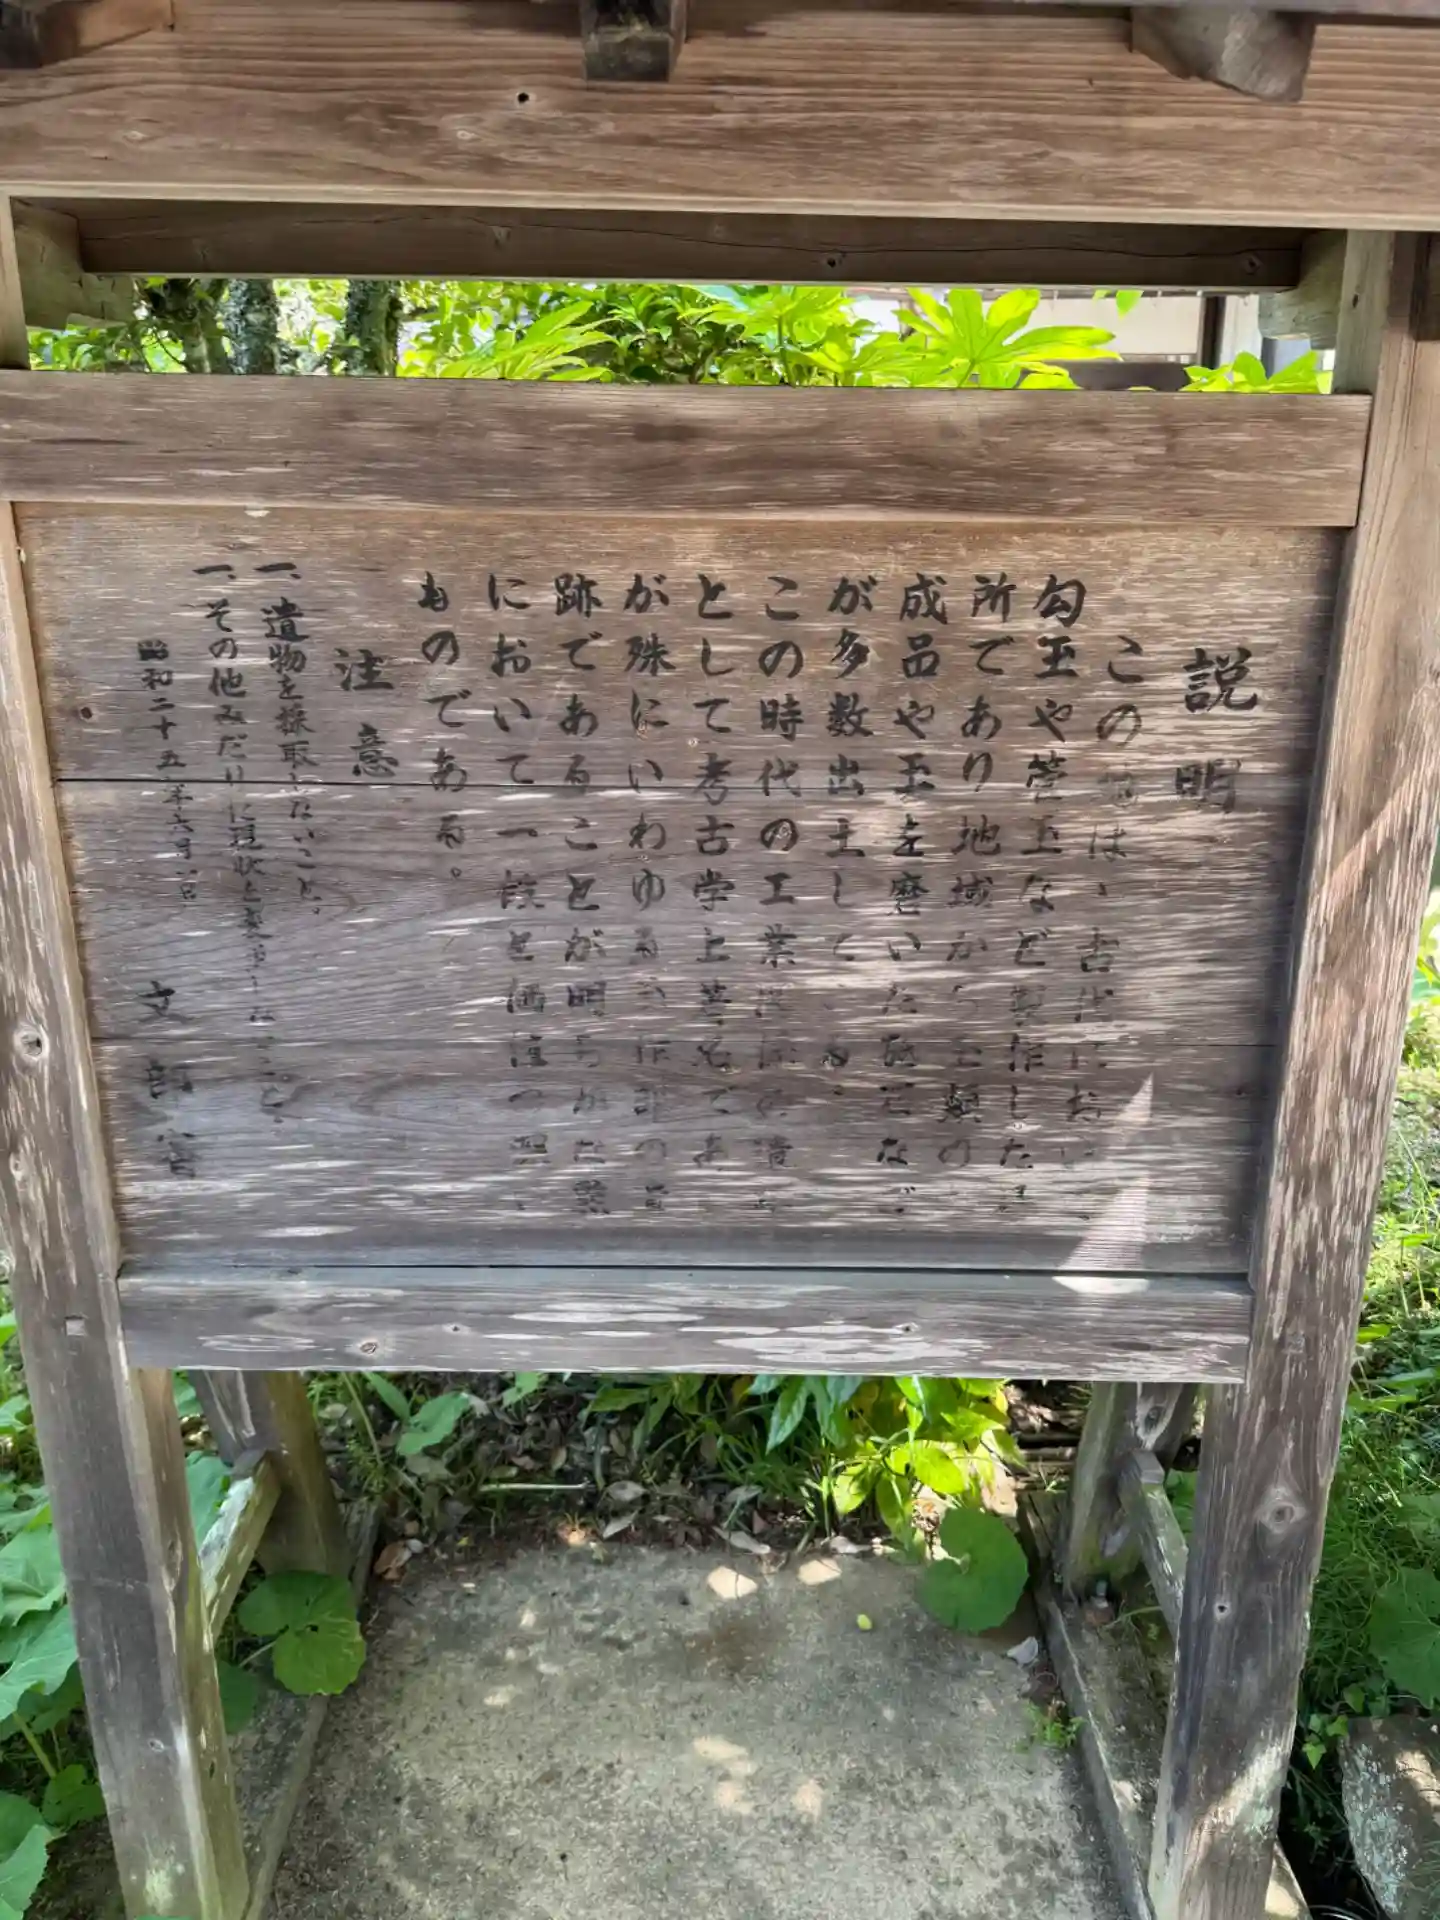 説明
この地は、古代におい
勾玉や管玉など製作した
所であり地域から玉類の
成品や玉を磨いた砥石など
が多数出土している。
この時代の工業
として考古学上著名であ
が殊にいわゆる玉作部の
跡であることが明らかな
において一段と価値の
ものである。
注意
一、遺物を採取しないこと。
一、その他みだりに現状を変更しないこと。
昭和二十五年六月 日
文部省